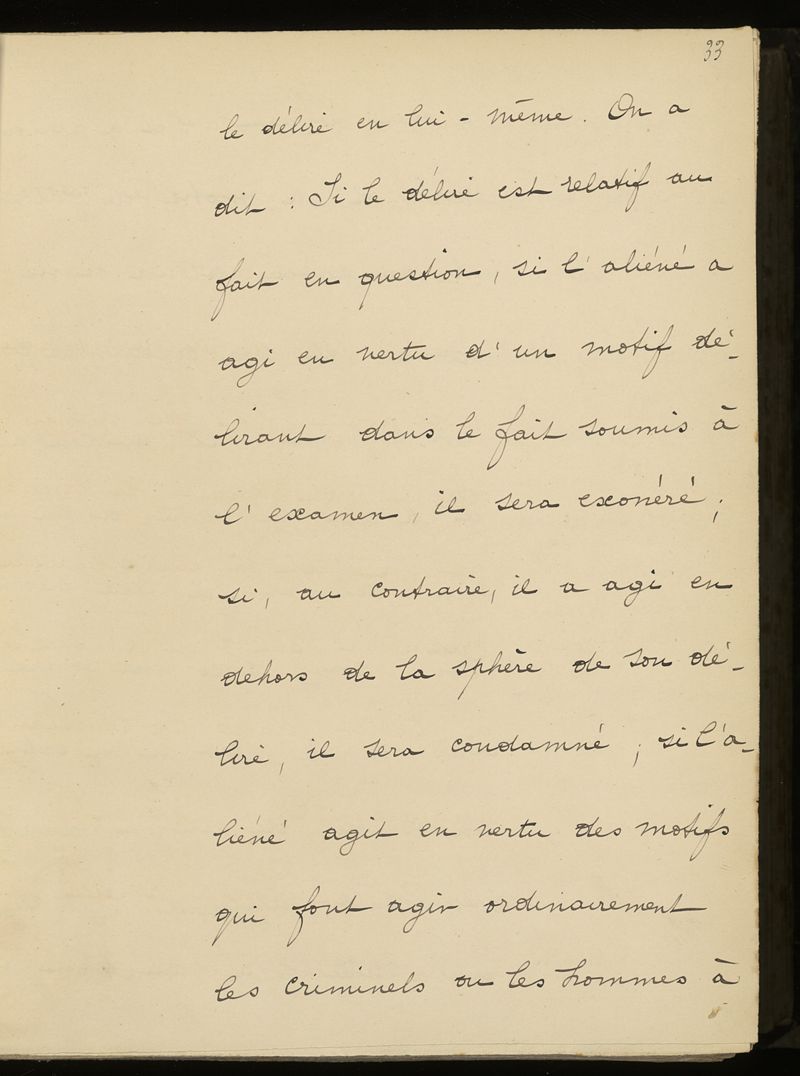 33
le délire en lui-même. On a
dit : Si le délire est relatif au
fait en question, si l'aliéné a
agi en vertu d'un motif dé-
lirant dans le fait soumis à
l'examen, il sera exonéré ;
si, au contraire, il a agi en
dehors de la sphère de son dé-
lire, il sera condamné ; si l'a-
liéné agit en vertu des motifs
qui font agir ordinairement
les criminels ou les hommes à